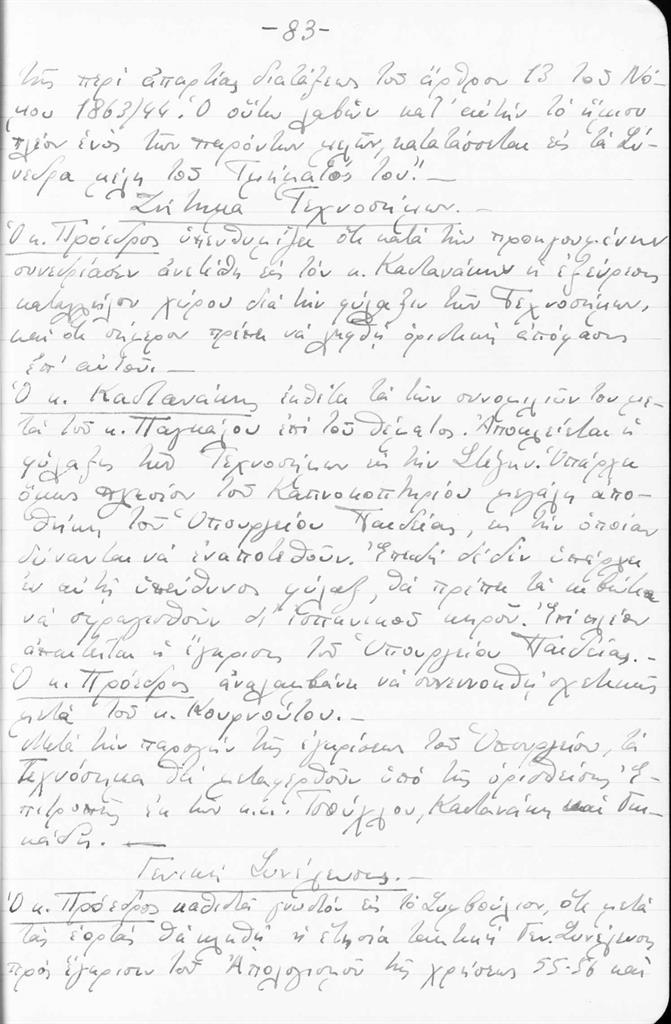 -83-
τῆς περὶ ἀπαρτίας διατάξεως τοῦ ἄρθρου 13 τοῦ Νό-
μου 1863/44. Ὁ οὕτω λαβὼν κατ' αὐτὴν τὸ ἥμισυ
πλέον ἑνὸς τῶν παρόντων μελῶν, κατατάσσεται εἰς τὰ Σύ-
νεδρα μέλη τοῦ Τμήματός του." -
Ζήτημα Τεχνοσήμων. -
Ὁ κ. Πρόεδρος ὑπενθυμίζει ὅτι κατὰ τὴν προηγουμένην
συνεδρίασιν ἀνετέθη εἰς τὸν κ. Καστανάκην ἡ ἐξεύρεσις
καταλλήλου χώρου διὰ τὴν φύλαξιν τῶν Τεχνοσήμων,
καὶ ὅτι σήμερον πρέπει νὰ ληφθῇ ὁριστικὴ ἀπόφασις
ἐπ' αὐτοῦ. -
Ὁ κ. Καστανάκης ἐκθέτει τὰ τῶν συνομιλιῶν του με-
τὰ τοῦ κ. Παγκάλου ἐπὶ τοῦ θέματος. Ἀποκλείεται ἡ
φύλαξις τῶν Τεχνοσήμων εἰς τὴν Στέγην. Ὑπάρχει
ὅμως πλησίον τοῦ Καπνοκοπτηρίου μεγάλη ἀπο-
θήκη τοῦ Ὑπουργείου Παιδείας, εἰς τὴν ὁποίαν
δύνανται νὰ ἐναποτεθοῦν. Ἐπειδὴ δὲ δὲν ὑπάρχει
ἐν αὐτῇ ὑπεύθυνος φύλαξ, θὰ πρέπει τὰ κιβώτια
νὰ σφραγισθοῦν δι' ἱσπανικοῦ κηροῦ. Ἐπὶ πλέον
ἀπαιτεῖται ἡ ἔγκρισις τοῦ Ὑπουργείου Παιδείας. -
Ὁ κ. Πρόεδρος ἀναλαμβάνει νὰ συνεννοηθῇ σχετικῶς
μετὰ τοῦ κ. Κουρνούτου. -
Μετὰ τὴν παροχὴν τῆς ἐγκρίσεως τοῦ Ὑπουργείου, τὰ
Τεχνόσημα θὰ μεταφερθοῦν ὑπὸ τῆς ὁρισθείσης Ἐ-
πιτροπῆς ἐκ τῶν κ.κ. Καστανάκη καὶ
Γενικὴ Συνέλευσις. -
Ὁ κ. Πρόεδρος καθιστᾷ γνωστὸν εἰς τὸ Συμβούλιον, ὅτι μετὰ
τὰς ἑορτὰς θὰ κληθῇ ἡ ἐτησία τακτικὴ Γεν. Συνέλευσις
πρὸς ἔγκρισιν τοῦ Ἀπολογισμοῦ τῆς χρήσεως 55-56 καὶ